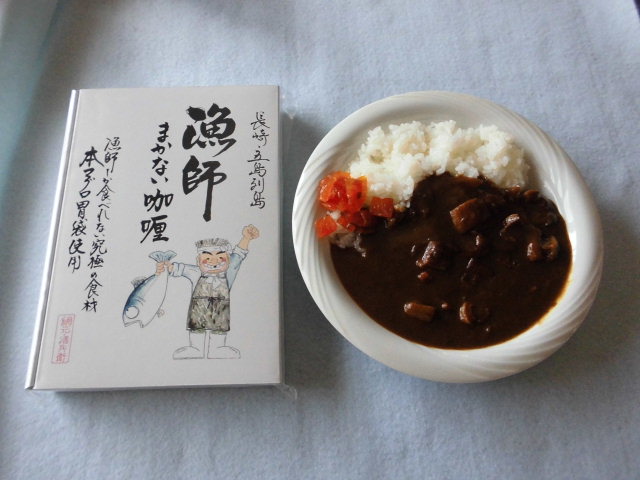 長崎五島列島
漁師
まかない咖喱
漁師しか食べれない究極の食い材
本マグロ胃袋使用